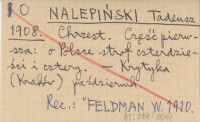 NALEPIŃSKI Tadeusz
1908. Chrzest. Część pierw-
sza: o Polsce strof czterdzie-
ści i cztery. — Krytyka
(Kraków) październik.
Rec.: "FELDMAN W. 1910.